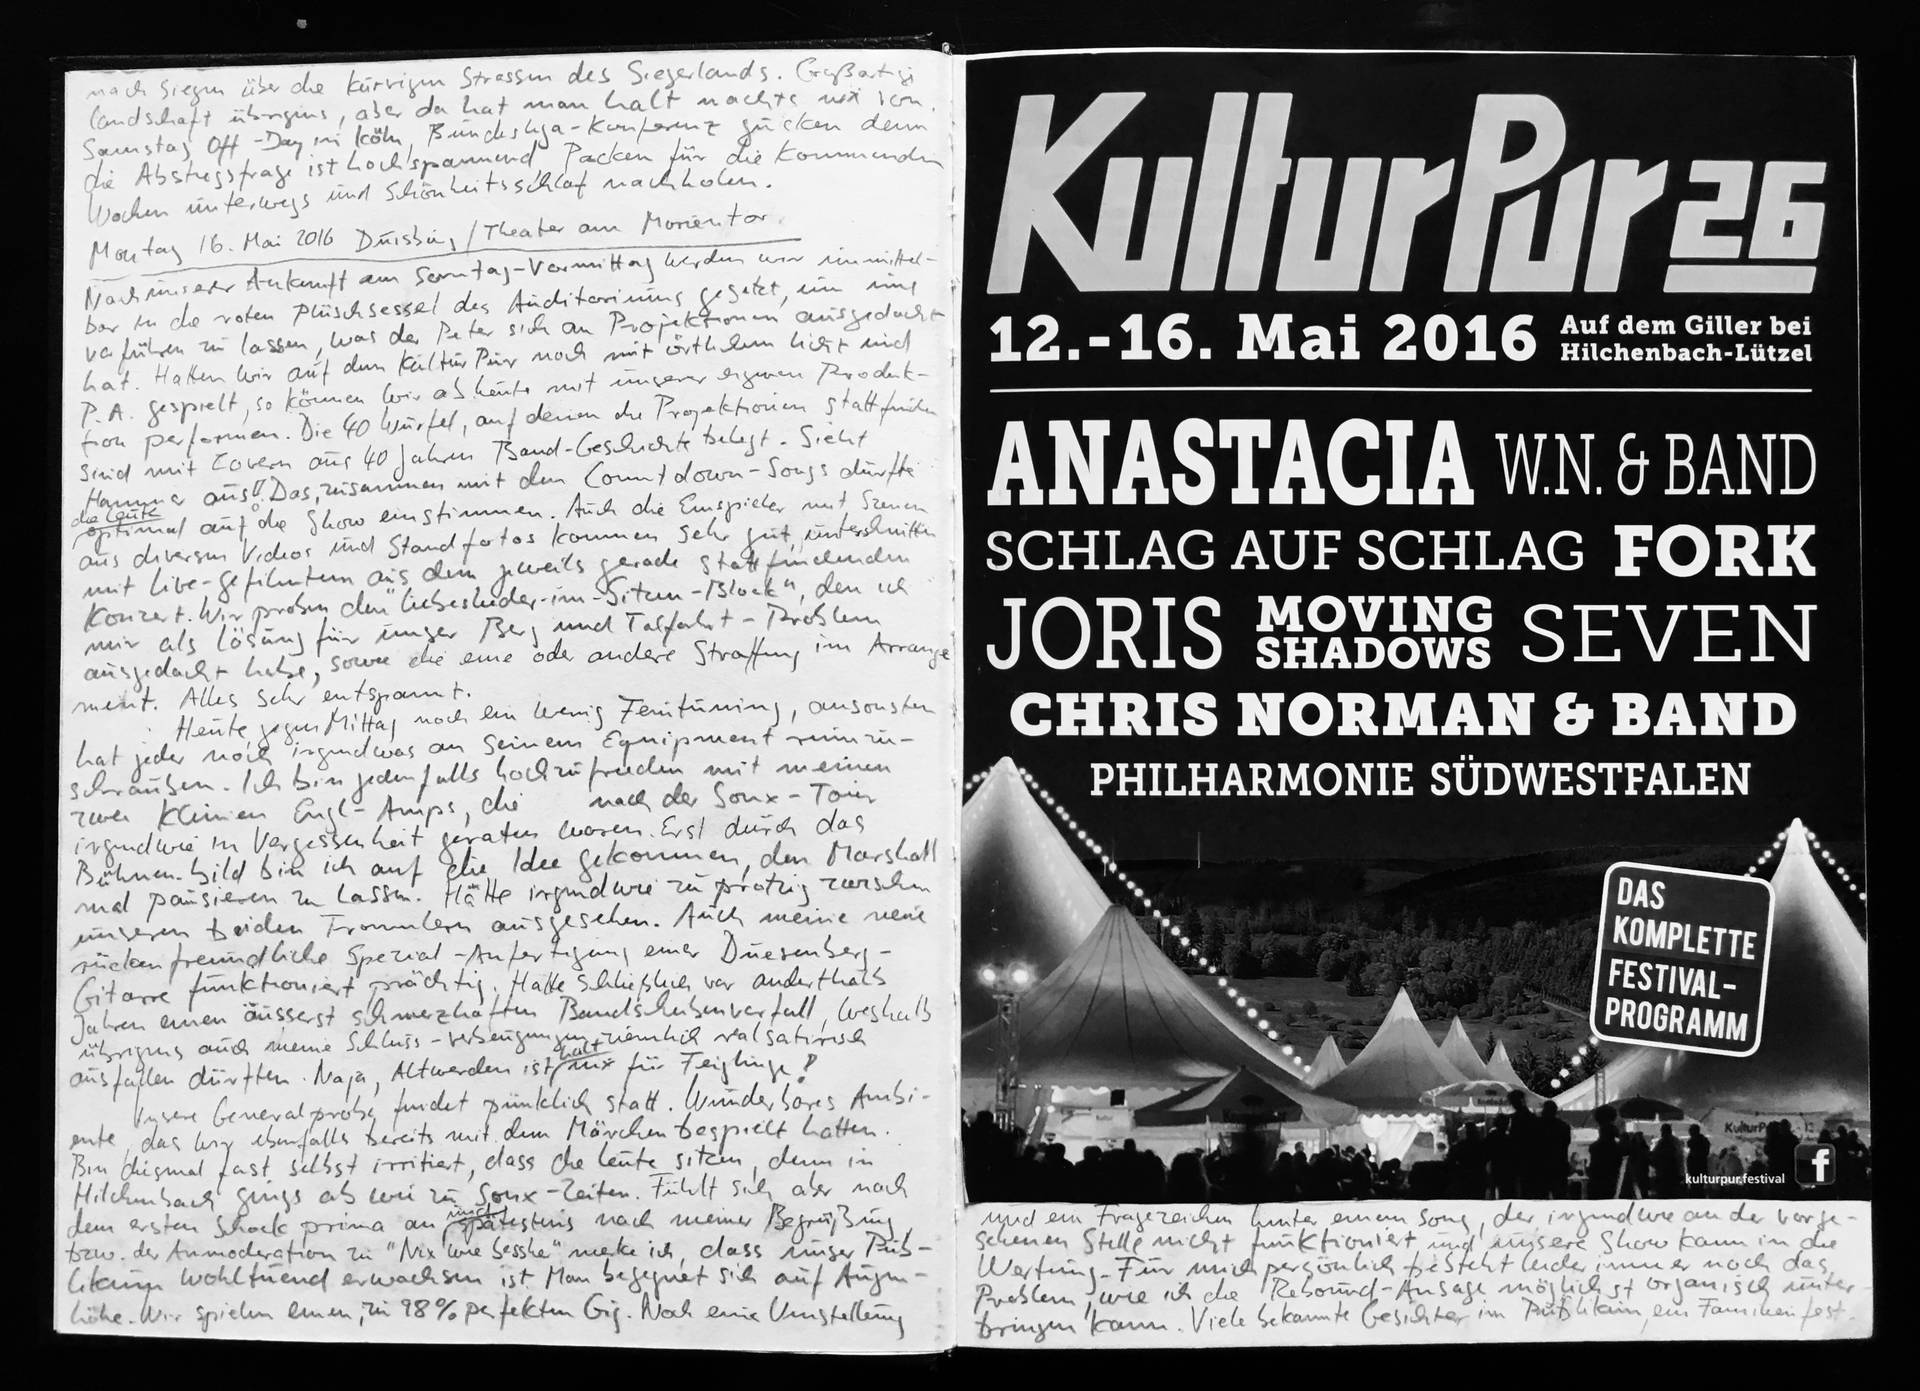 nach Siegen über die kurvigen Strassen des Siegerlands. Großartige
Landschaft übrigens, aber da hat man halt nachts nix von.
Samstag Off-Day in Köln, Bundesliga-Konferenz gucken denn
die Abstiegsfrage ist hochspannend Packen für die kommenden
Wochen unterwegs und Schönheitsschlaf nachholen.
Montag 16. Mai 2016 Duisburg / Theater am Marientor.
Nach unserer Ankunft am Sonntag-Vormittag werden wir unmittel-
bar in die roten Plüschsessel des Auditoriums gesetzt, um uns
vorführen zu lassen, was der Peter sich an Projektionen ausgedacht
hat. Hatten wir auf dem KulturPur noch mit örtlichem Licht und
P.A. gespielt, so können wir ab heute mit unserer eigenen Produk-
tion performen. Die 40 Würfel, auf denen die Projektionen stattfinden
sind mit Covern aus 40 Jahren Band-Geschichte belegt. Sieht
Hammer aus!! Das, zusammen mit den Countdown-Songs dürfte
die Leute
optimal auf die Show einstimmen. Auch die Einspieler mit Szenen
aus diversen Videos und Standfotos kommen sehr gut, unterschnitten
mit live-gefilmtem aus dem jeweils gerade stattfindenden
Konzert. Wir proben den "Liebeslieder-im-Sitzen-Block", den ich
mir als Lösung für unser Berg und Talfahrt-Problem
ausgedacht habe, sowie die eine oder andere Straffung im Arrange
ment. Alles sehr entspannt.
Heute gegen Mittag noch ein wenig Feintuning, ansonsten
hat jeder noch irgendwas an seinem Equipment rumzu-
schrauben. Ich bin jedenfalls hochzufrieden mit meinen
zwei kleinen Engl-Amps, die nach der Sonx-Tour
irgendwie in Vergessenheit geraten waren. Erst durch das
Bühnen-bild bin ich auf die Idee gekommen, den Marshall
mal pausieren zu lassen. Hätte irgendwie zu protzig zwischen
unseren beiden Trommlern ausgesehen. Auch meine neue
rückenfreundliche Spezial-Anfertigung einer Duesenberg-
Gitarre funktioniert prächtig. Hatte schließlich vor anderthalb
Jahren einen äusserst schmerzhaften Bandscheibenvorfall, weshalb
übrigens auch meine Schluss-verbeugungen ziemlich realsatirisch
ausfallen dürften. Naja, Altwerden ist halt nix für Feiglinge!
Unsere Generalprobe findet pünktlich statt. Wunderbares Ambi-
ente, das wir ebenfalls bereits mit dem Märchen bespielt hatten.
Bin diesmal fast selbst irritiert, dass die Leute sitzen, denn in
Hilchenbach gings ab wie zu Sonx-Zeiten. Fühlt sich aber nach
dem ersten Schock prima an und spätestens nach meiner Begrüßung
bzw. der Anmoderation zu "Nix wie bessher" merke ich, dass unser Pub-
likum wohltuend erwachsen ist. Man begegnet sich auf Augen-
höhe. Wir spielen einen, zu 98% perfekten Gig. Noch eine Umstellung
KulturPur26
12.-16. Mai 2016
Auf dem Giller bei
Hilchenbach-Lützel
ANASTACIA W.N. & BAND
SCHLAG AUF SCHLAG FORK
JORIS MOVING SHADOWS SEVEN
CHRIS NORMAN & BAND
PHILHARMONIE SÜDWESTFALEN
DAS
KOMPLETTE
FESTIVAL-
PROGRAMM
KulturPur
kulturpur.festival
f
und ein Fragezeichen hinter einem Song, der irgendwie an der vorge-
sehenen Stelle nicht funktioniert und unsere Show kann in die
Wertung. Für mich persönlich besteht leider immer noch das
Problem, wie ich die Rebound-Ansage möglichst organisch unter-
bringen kann. Viele bekannte Gesichter im Publikum, ein Familienfest.